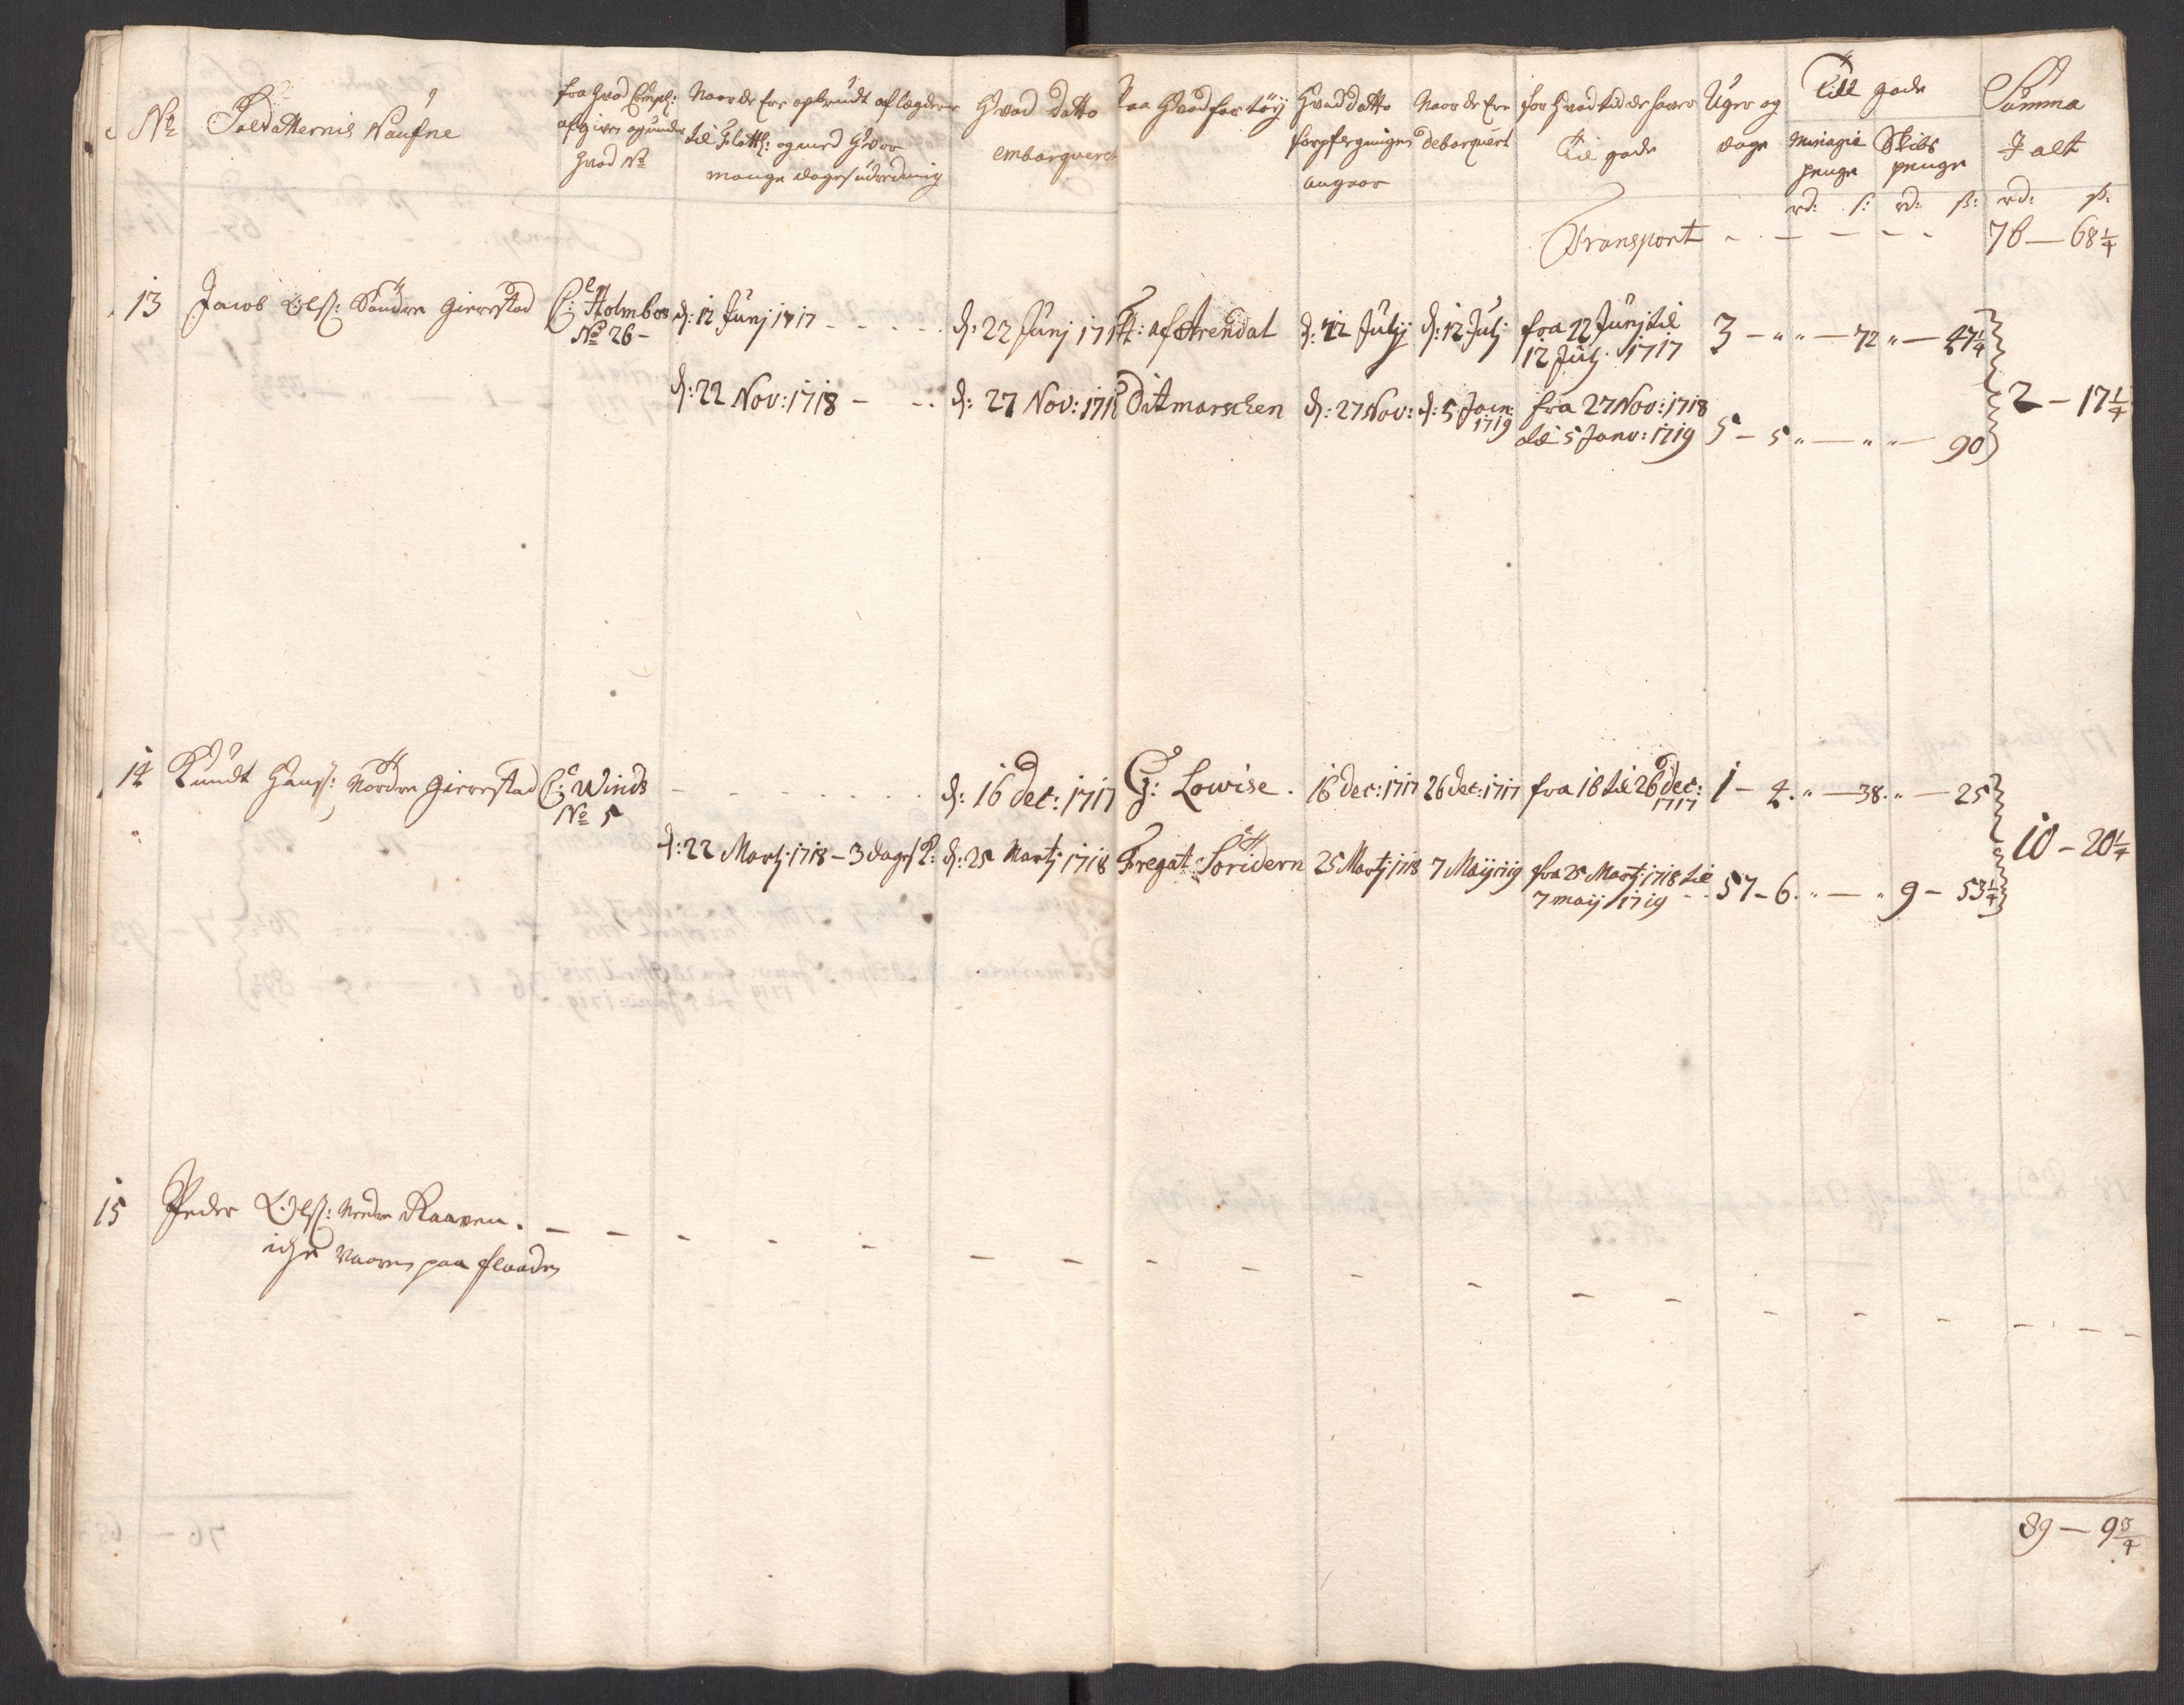 No Soldatternis Naufne
fra hvad Comp:
afgiven og under
hvad No
Naar de ere opbrudt af lægderne
til Flotth: og med hvor
mange dages udredning
Hvad Datto
embarqveret
Paa Hvad fartöy
Hvad datto
forpflegningen
angaar
Naar de Ere
debarqvert
for hvad tid de haver
til gode
Uger og
dage
Till gode
Minagie
penge
Skibs
penge
Summa
J alt
rd: s: rd: s: rd: s:
Transport - - - - - 76 — 68 1/4
13 Jacob Olss: Søndre Gierrestad C: Holmboe No 26 - d: 12 Junj 1717 - - - - - d: 22 Junj 1717 Pr: af Arendal d: 12 Julj d: 12 Julj fra 12 Junj til
12 Julj 1717 3 - " " — 72 " — 47 1/4
d: 22 Nov: 1718 - - - d: 27 Nov: 1718 Ditmarschen d: 27 Nov: d: 5 Jan: 1719 fra 27 Nov: 1718
til 5 Janv: 1719 5 - 5 " — " " — 90
2 - 17 1/4
14 Knudt Hanss: Nordre Gierrestad C: Winds No 5 - - - - - - d: 16 dec: 1717 G: Lowise. 16 dec: 1717 26 dec: 1717 fra 16 til 26 dec:
1717 1 - 4. " — 38. " — 25
d: 22 Martj 1718 - 3 dages P: d: 25 Martj 1718 Fregat Söridern 25 Martj 1718 7 Maij 1719 fra 25 Martj 1718 til
7 maij 1719 - - 57 - 6. " — " 9 - 53 1/4
10 - 20 1/4
15 Peder Olss: Nedre Raaven. - - - - - -
iche Vaaren paa flaaden
89 — 9 3/4